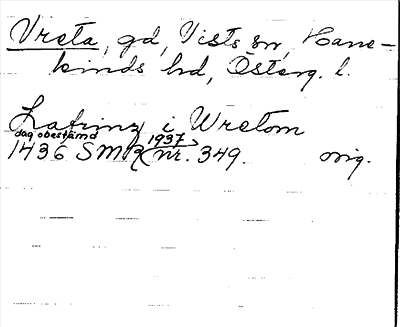 Vreta, gd, Vists sn, Hane-
kinds hd, Österg. l.
Lafrinz i Wretom
dag obestämd 1937
1436 SMR nr. 349. orig.